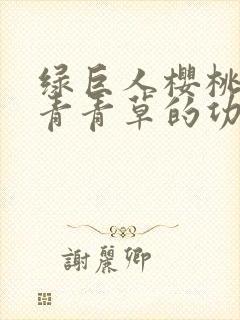 绿巨人樱桃
青青草的功
謝麗卿